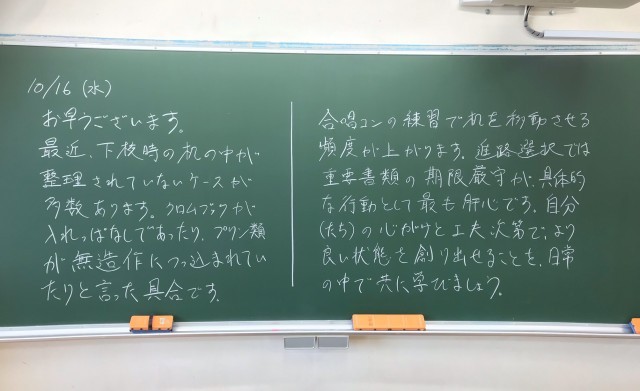 10/16 (水)
お早うございます。
最近、下校時の机の中が
整理されていないケースが
多数あります。クロムブックが
入れっぱなしであったり、プリン類
が無造作につっ込まれてい
たりと言った具合です。
合唱コンの練習で机を移動させる
頻度が上がります。進路選択では
重要書類の期限厳守が、具体的
な行動として最も肝心です。自分
(たち)の心がけと工夫次第で、より
良い状態を創り出せることを、日常
の中で共に学びましょう。